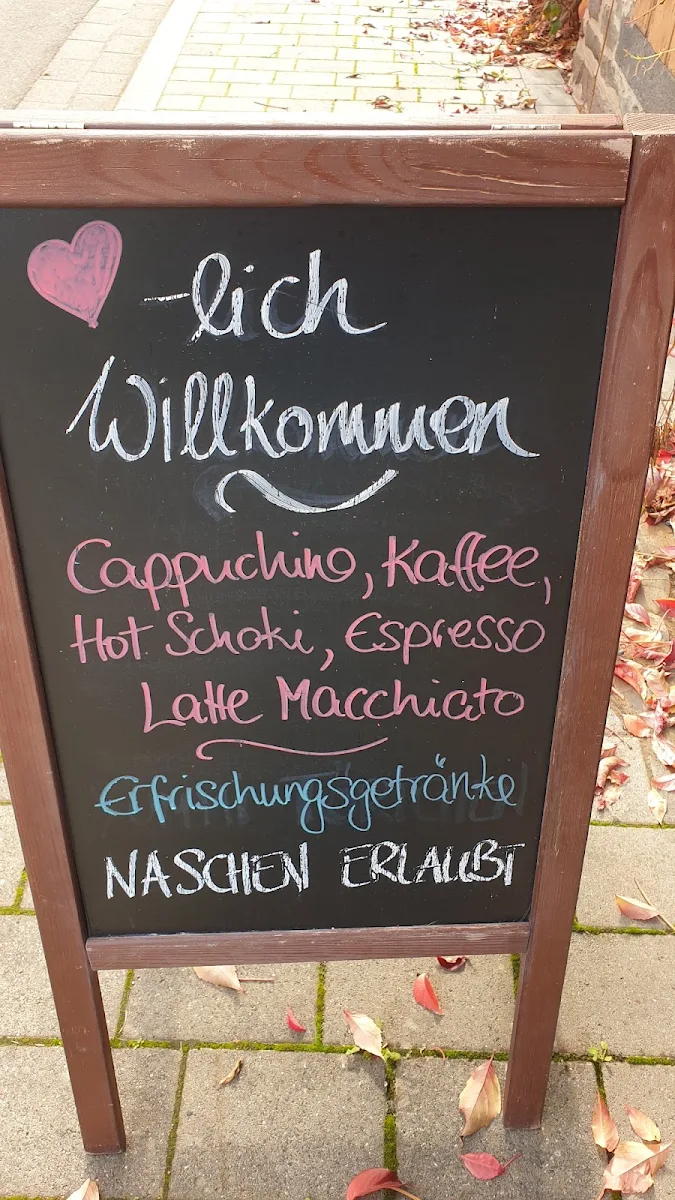 -lich
Willkommen
Cappuchino, Kaffee,
Hot Schoki, Espresso
Latte Macchiato
Erfrischungsgetränke
NASCHEN ERLAUBT